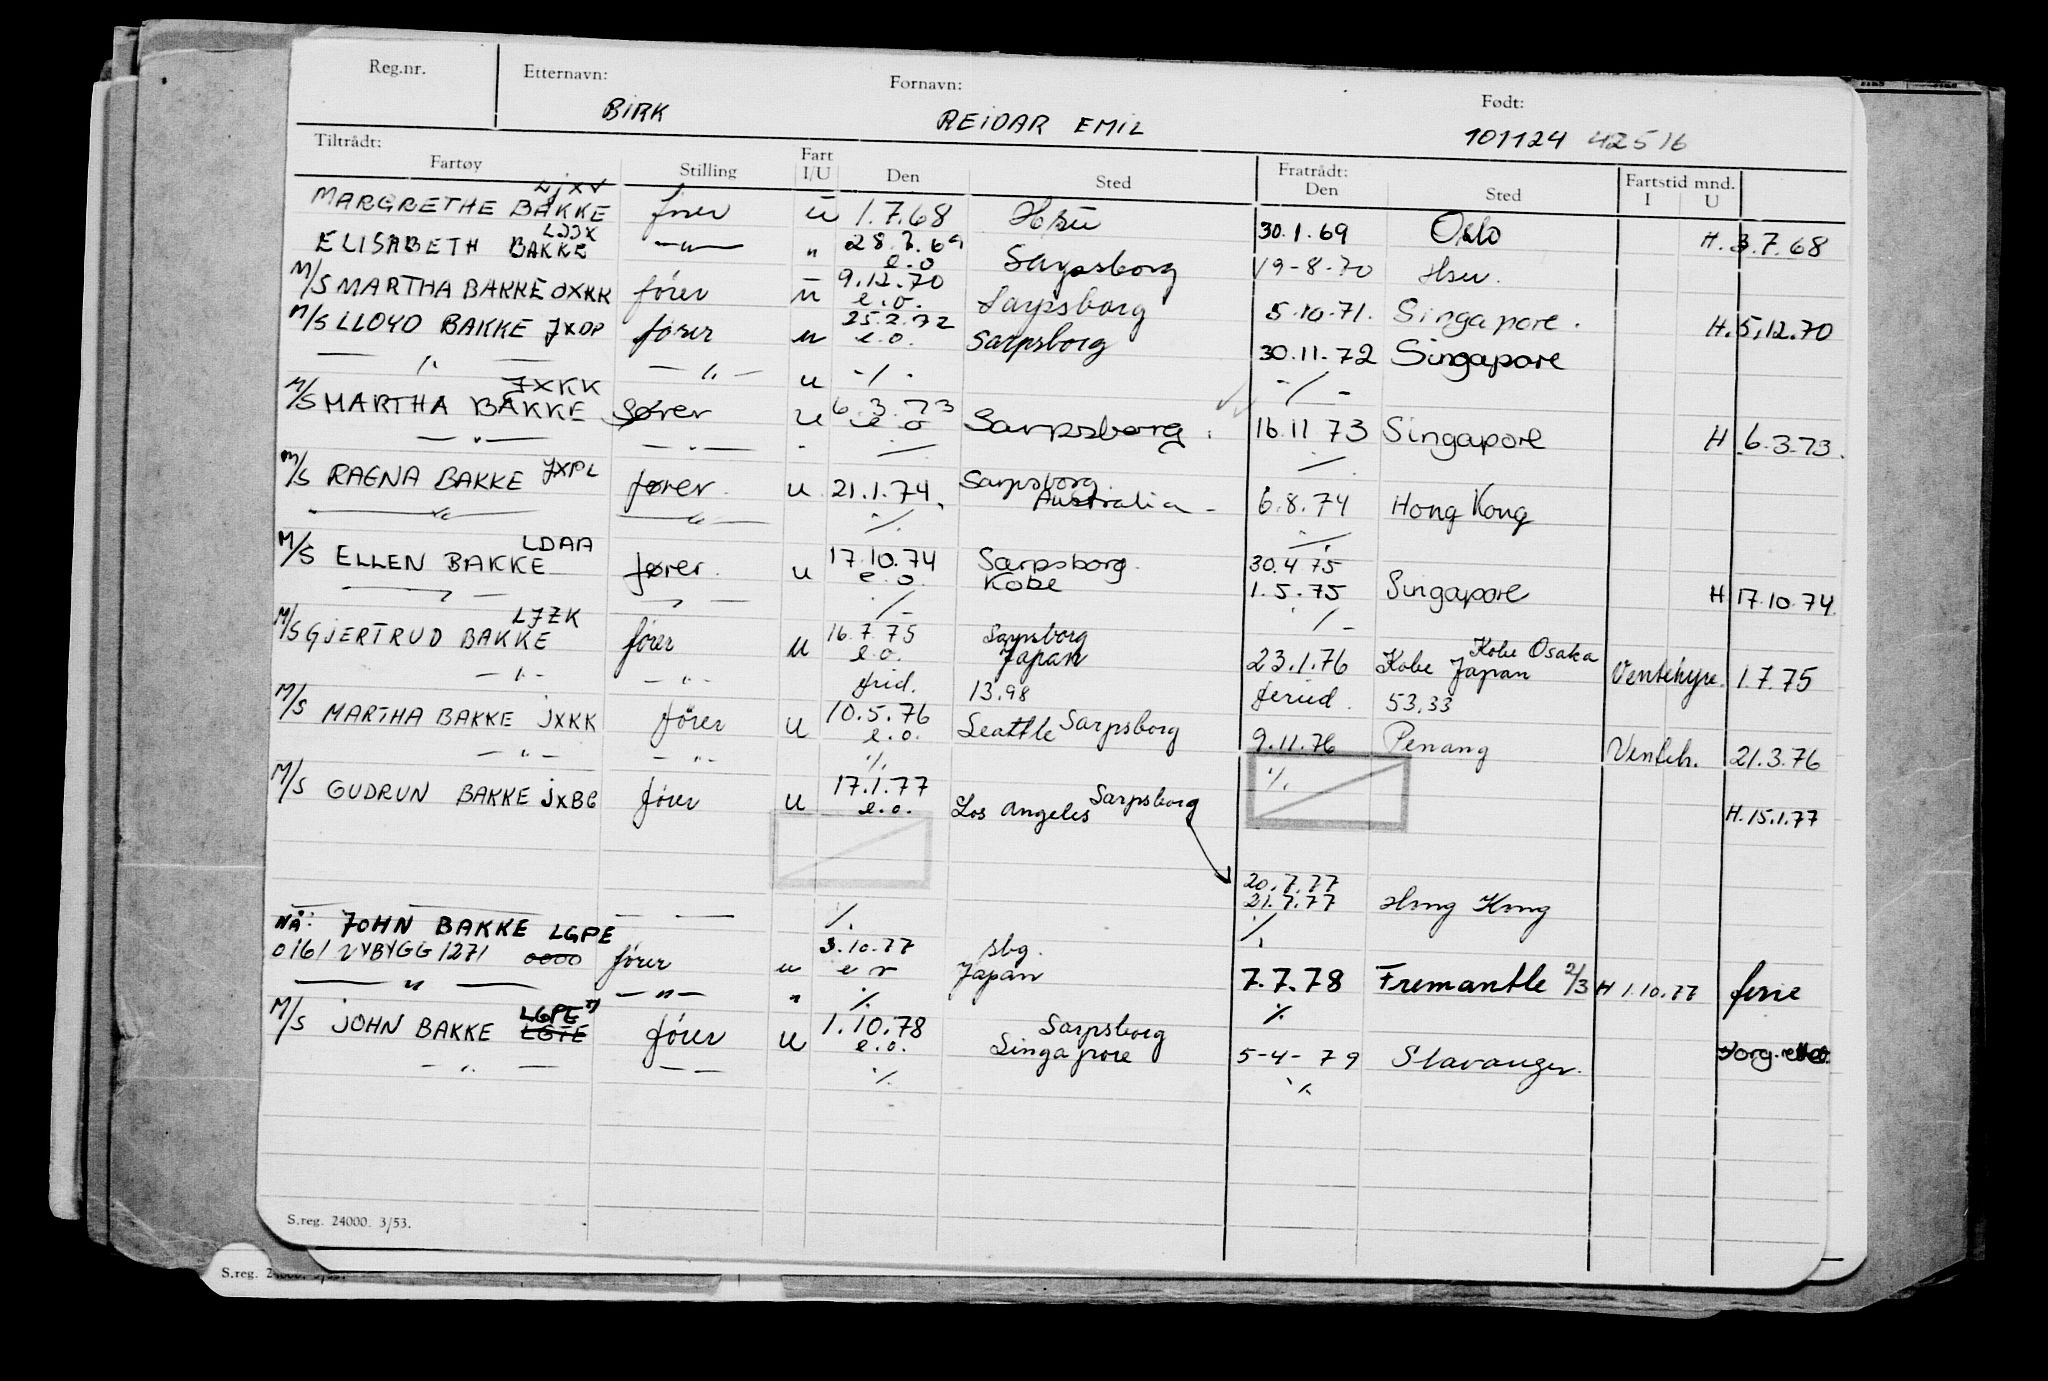 Reg.nr. Etternavn: Fornavn: Født:
BIRK REIDAR EMIL 101124 42516
Tiltrådt: Fart Fratrådt: Fartstid mnd.
Fartøy Stilling I/U Den Sted Den Sted I U
LJXV
MARGRETHE BAKKE fører u 1.7.68 Hsu 30.1.69 Oslo H. 3.7.68
LJJX
ELISABETH BAKKE —"— " e.o Sarpsborg 19-8-70 Hsu.
M/S MARTHA BAKKE OXKK fører u 9.12.70 e.o. Sarpsborg 5.10.71. Singapore. H. 5.12.70
M/S LLOYD BAKKE JXOP fører u 25.2.72 e.o. Sarpsborg 30.11.72 Singapore
—"— —"— u -/- -/-
JXKK
M/S MARTHA BAKKE fører u 6.3.73 e o Sarpsborg. 16.11 73 Singapore H 6.3.73.
—"— —"— - -/- -/-
M/S RAGNA BAKKE JXPL fører. u 21.1.74. Sarpsborg. Australia - 6.8.74 Hong Kong
—"— —"— ./. ./.
LDAA
M/S ELLEN BAKKE fører. u 17.10.74 e.o. Sarpsborg. Kobe 30.4 75
1.5.75 Singapore H 17.10.74.
—"— —"— ./- ./-
LJZK
M/S GJERTRUD BAKKE fører u 16.7.75 e.o. Sarpsborg Japan 23.1.76 Kobe Japan Kobe Osaka Ventehyre. 1.7.75
—"— —"— frid. 13.98 feried. 53.33
M/S MARTHA BAKKE JXKK fører u 10.5.76 e.o. Seattle Sarpsborg 9.11.76 Penang Venteh. 21.3.76
—"— —"— ./. ./.
M/S GUDRUN BAKKE JXBG fører u 17.1.77 e.o. Los Angeles Sarpsborg H. 15.1.77
20.7.77
21.7.77 Hong Kong
— — — — ./. ./.
NÅ: JOHN BAKKE LGPE
0161 NYBYGG 1271 0000 fører u 3.10.77 sbg. Japan 7.7.78 Fremantle 2/3 H 1.10.77 ferie
—"— —"— " ./. ./.
LGPE
M/S JOHN BAKKE LGTE fører u 1.10.78 e.o. Sarpsborg Singapore 5-4-79 Stavanger.
—"— —— ./. ./.
S.reg. 24000. 3/53.
S.reg.